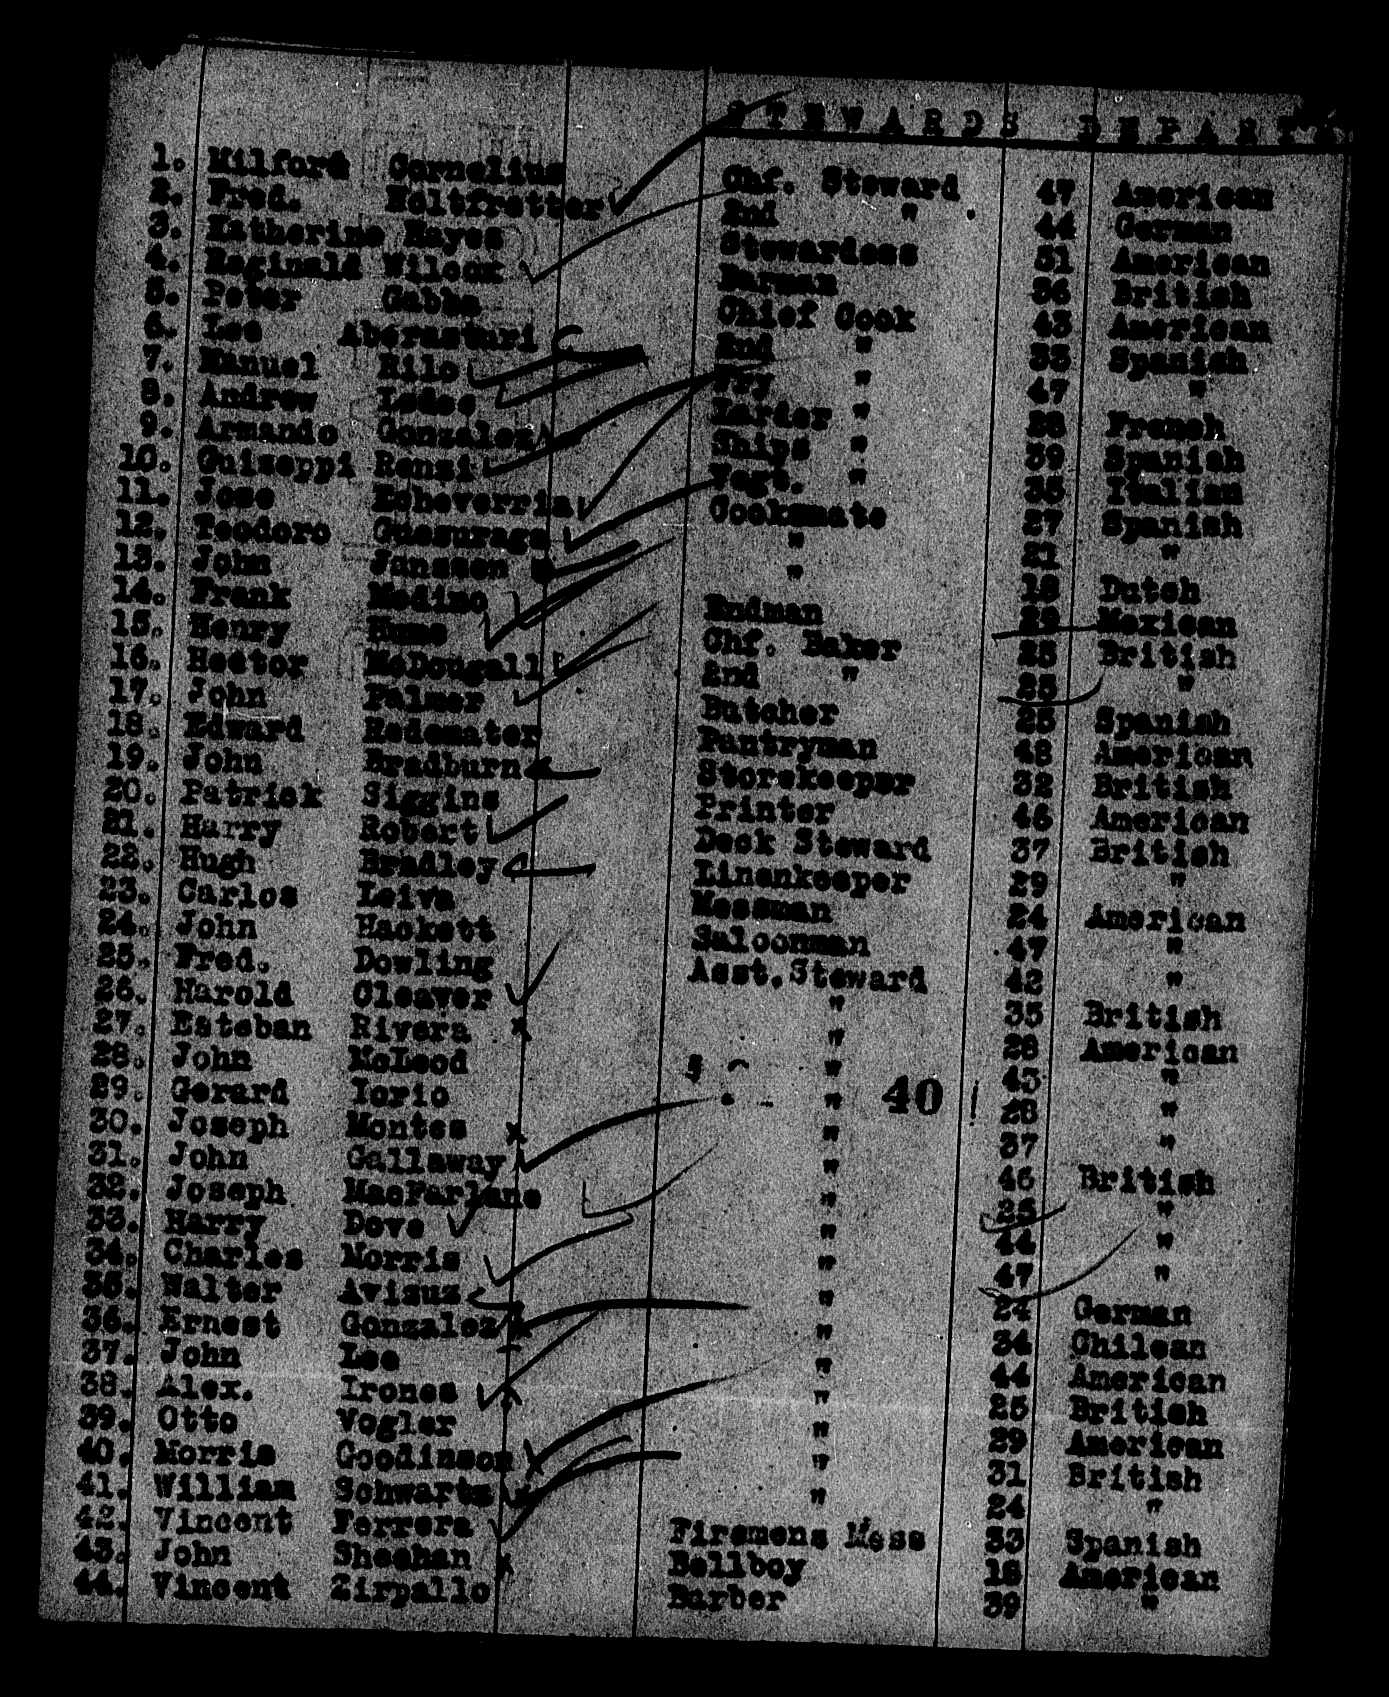 STEWARDS DEPART
1. Milford Cornelius Chf. Steward 47 American
2. Fred. Holtfretter 2nd " 44 German
3. Katherine Hayes Stewardess 31 American
4. Reginald Wilcox Barman 36 British
5. Peter Gabha Chief Cook 43 American
6. Leo Aberasturi 2nd " 33 Spanish
7. Manuel Hilo Fry " 47 "
8. Andrew Larder " 38 French
9. Armando Gonzalez Ships " 39 Spanish
10. Guiseppi Renzi Vegt. " 35 Italian
11. Jose Echeverria Cooksmate 27 Spanish
12. Teodoro " 21 "
13. John Janssen " 18 Dutch
14. Frank Medino Endman 29 Mexican
15. Henry Hume Chf. Baker 25 British
16. Hector McDougall 2nd " 25 "
17. John Palmer Butcher 25 Spanish
18. Edward Redemater Pantryman 48 American
19. John Bradburn Storekeeper 32 British
20. Patrick Siggins Printer 46 American
21. Harry Robert Deck Steward 37 British
22. Hugh Bradley Linenkeeper 29 "
23. Carlos Leiva Messman 24 American
24. John Hackett Saloonman 47 "
25. Fred. Dowling Asst. Steward 42 "
26. Harold Cleaver " 35 British
27. Esteban Rivera x " 28 American
28. John McLeod " 43 "
29. Gerard Iorio " 40 28 "
30. Joseph Montes x " 37 "
31. John Gallaway " 46 British
32. Joseph MacFarlane " 25 "
33. Harry Dove " 44 "
34. Charles Morris " 47 "
35. Walter Avisus " 24 German
36. Ernest Gonzalez " 34 Chilean
37. John Lee " 44 American
38. Alex. Irones " 25 British
39. Otto Vogler " 29 American
40. Morris Goodinson " 31 British
41. William Schwartz " 24 "
42. Vincent Ferrera Firemens Mess 33 Spanish
43. John Sheehan x Bellboy 18 American
44. Vincent Zirpallo Barber 39 "